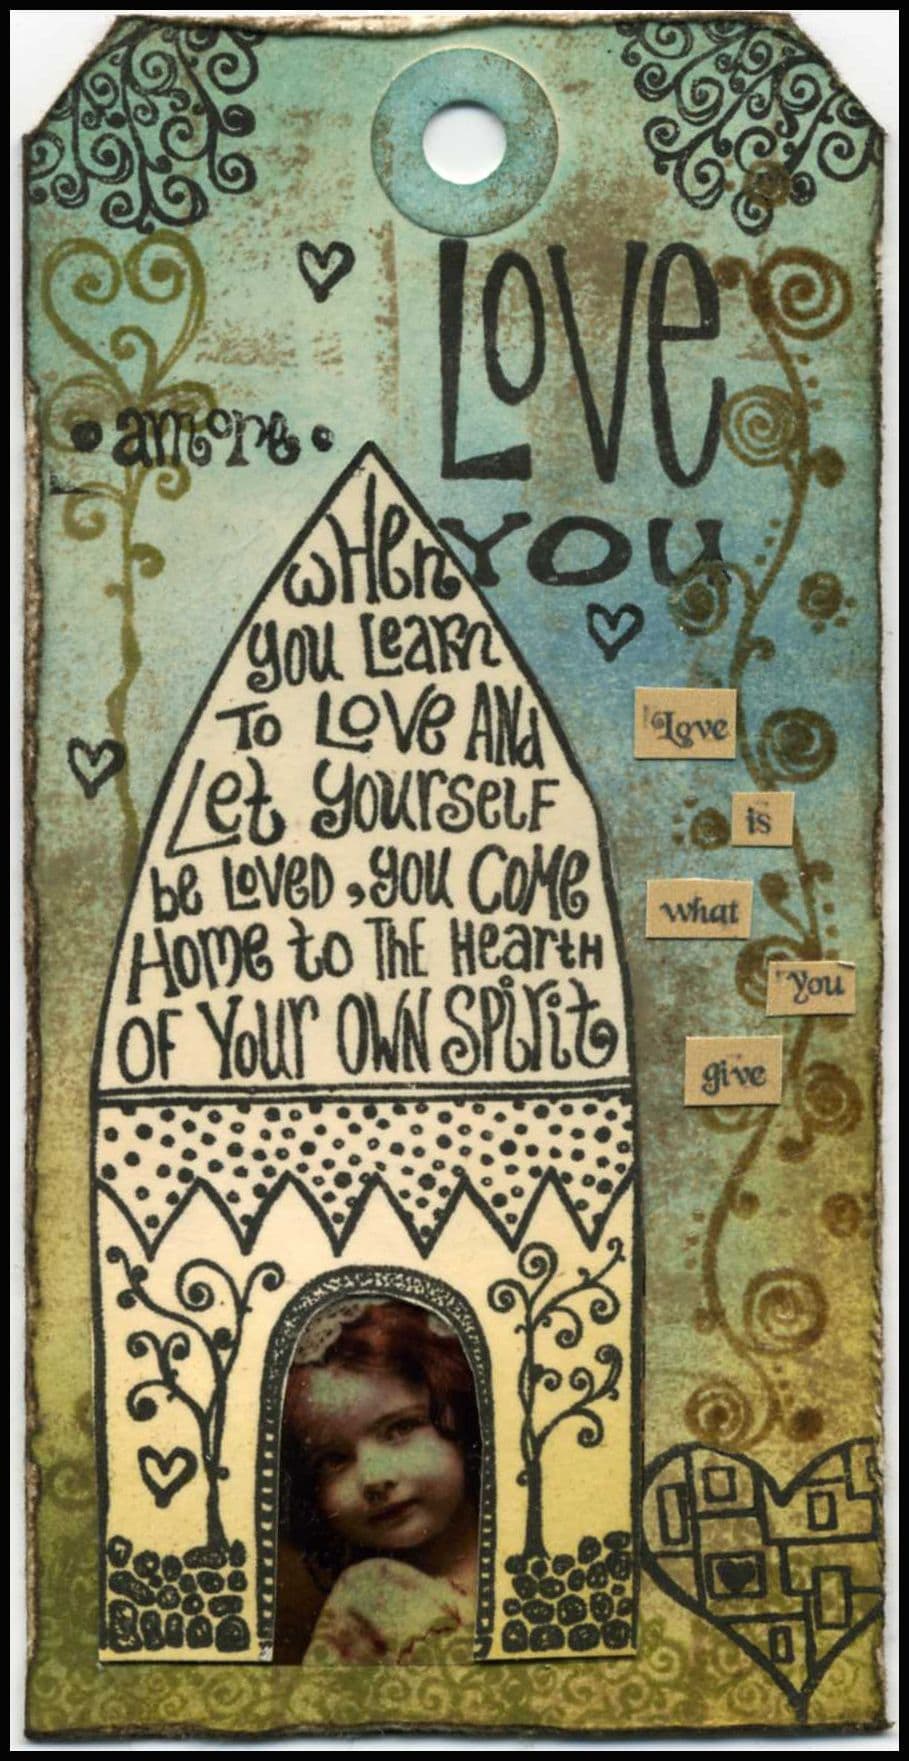 Love
You
•amore•
wHen
you Learn
To Love ANd
Let YourseLF
be LoveD, you COMe
Home to THE HearTH
OF Your OWN Spirit
Love
is
what
you
give